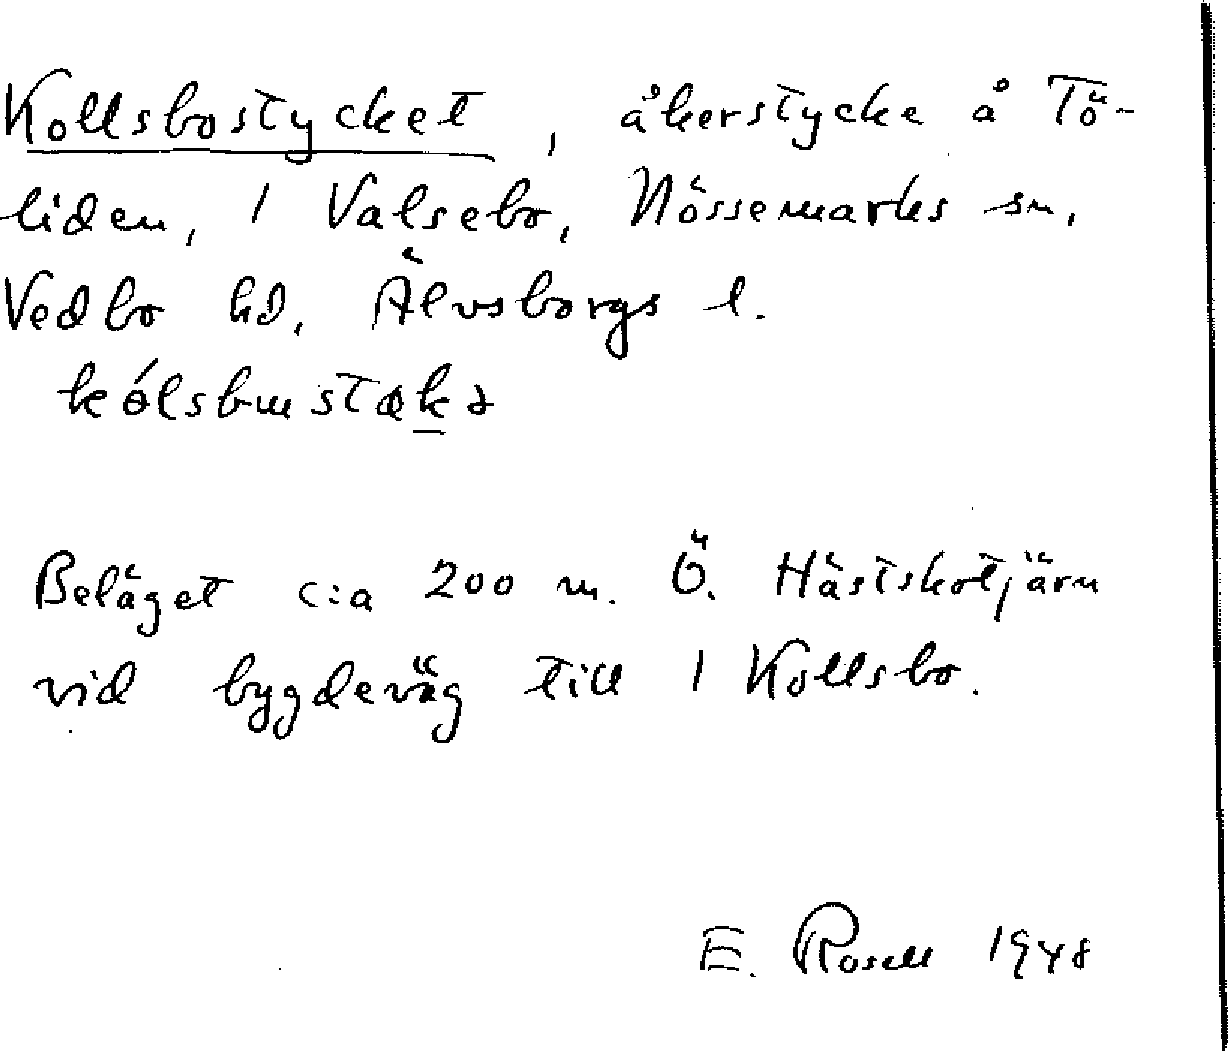 Kollsbostycket, åkerstycke å Tö-
liden, 1 Valsebo, Nössemarks sn,
Vedbo hd, Älvsborgs l.
Beläget c:a 200 m. Ö. Hästskotjärn
vid bygdeväg till 1 Kollsbo.
E. Rosell 1948